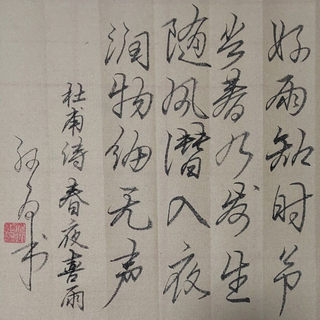 好雨知时节
当春乃发生
随风潜入夜
润物细无声
杜甫诗春夜喜雨
书